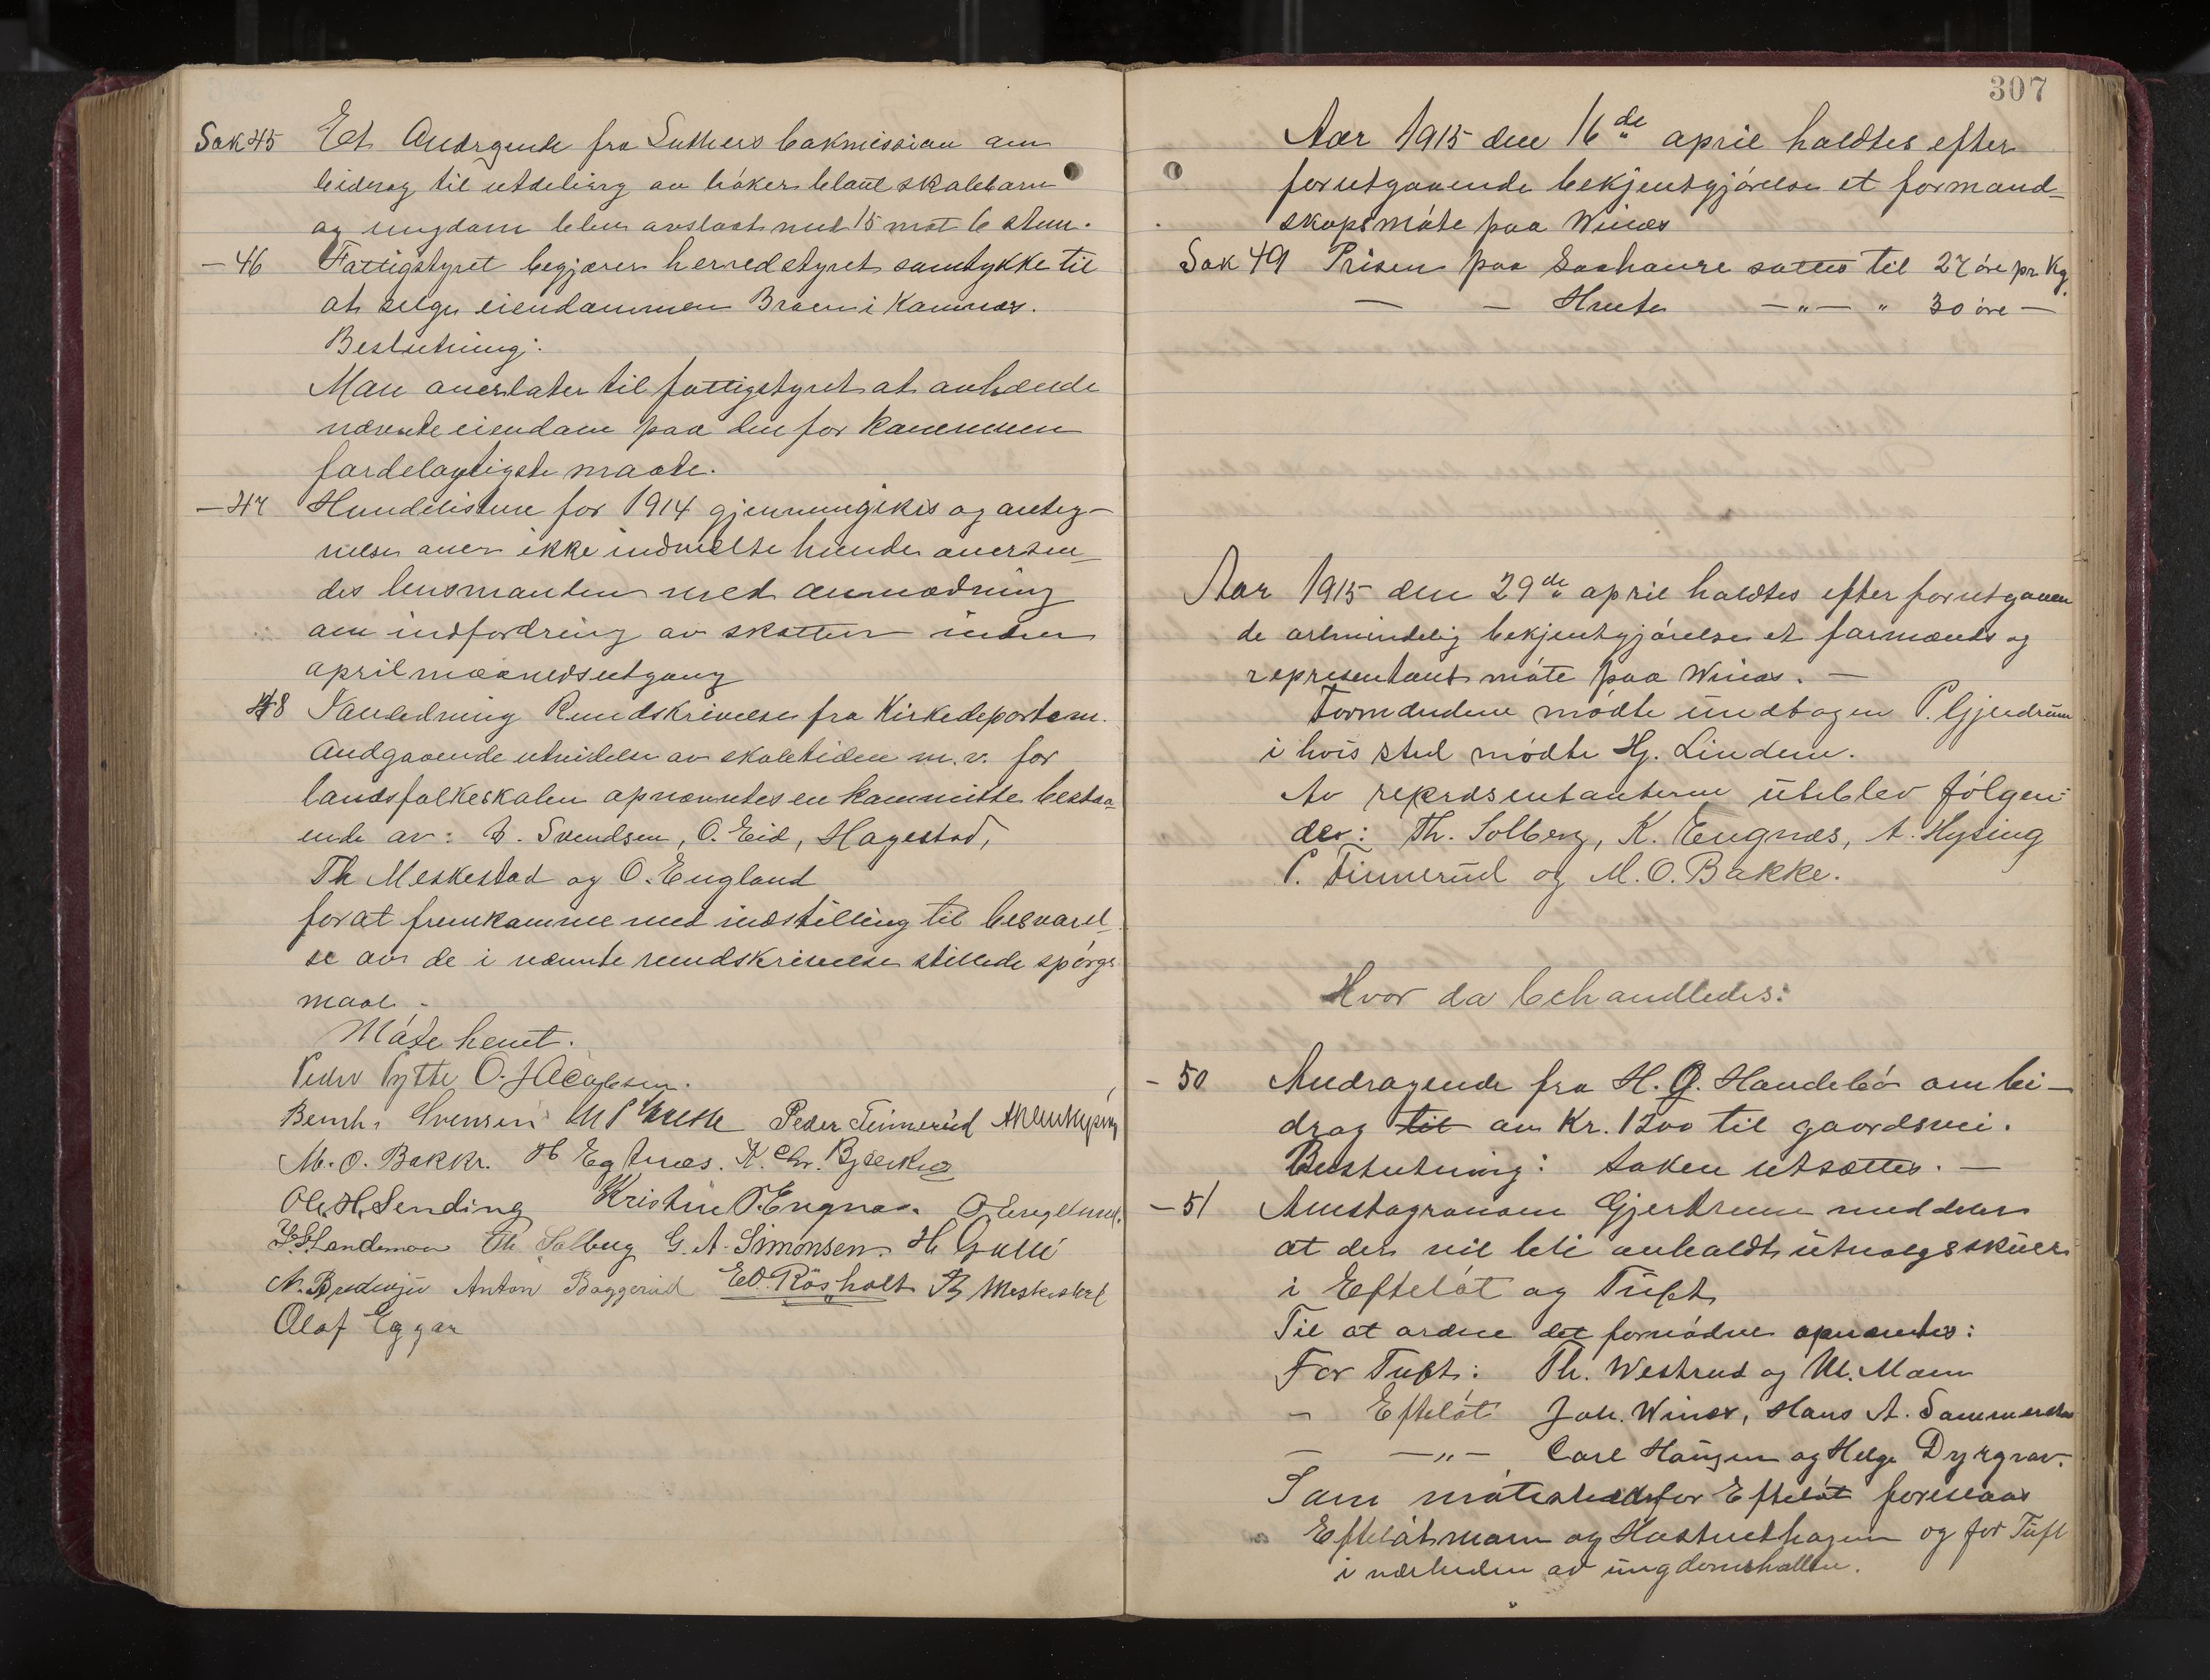 Sak 45 Et Andragende fra Luthers bokmission om
bidrag til utdeling av bøker blant skolebarn
og ungdom blev avslaat med 15 mot 6 stem.
— 46 Fattigstyret begjærer herredstyrets samtykke til
at selge eiendommen Braen i Komnes.
Beslutning:
Man overlater til fattigstyret at avhænde
nævnte eiendom paa den for kommunen
fordelagtigste maate.
— 47 Hundelistene for 1914 gjennemgikes og anteg-
nelser over ikke indmelte hunder oversen-
des lensmanden med anmodning
om indfordring av skatten inden
april maanedsutgang
48 I anledning Rundskrivelse fra Kirkedepartem.
Andgaaende utvidelse av skoletiden m.v. for
landsfolkeskolen opnævntes en kommitte bestaa
ende av: B. Svendsen, O. Eid, Hagestad,
Th Meskestad og O. England
for at fremkomme med indstilling til besvarel-
se av de i nævnte rundskrivelse stillede spørgs
maal.
Møte hevet.
Peder Pytte O. Jacobsen.
Bernh. Svensen Peder Tinnerud
M. O. Bakke. H Egtnæs. K. Chr. Bjerknes
Ole H. Sending Kristen O. Engnæs. O. England.
Landsman Th. Solberg G. A. Simonsen. H Gulli
N. Bredvju Anton Baggerud Ed. Røsholt Th Meskestad
Olaf Eggar
307
Aar 1915 den 16de april holdtes efter
forutgaaende bekjentgjørelse et formand-
skapsmøte paa Winæs
Sak 49 Prisen paa Saahavre sattes til 27 øre pr Kg.
— — Hvete —"— " 30 øre —
Aar 1915 den 29de april holdtes efter forutgaaen
de almindelig bekjentgjørelse et formænds og
representant møte paa Winæs. —
Formændene møtte undtagen P. Gjerdrum
i hvis sted møtte Hj. Lindem.
Av repræsentanterne uteblev følgen-
der: Th. Solberg, K. Engnæs, A. Hysing
P. Tinnerud og M. O. Bakke.
Hvor da behandledes:
- 50 Andragende fra H. O. Handebø om bi-
drag til av Kr. 1200 til gaardsvei.
Beslutning: Saken utsættes. —
- 51 Amtsagronom Gjertrum meddeler
at der vil bli avholdt utvalgsskuer
i Efteløt og Tuft
Til at ordne det fornødne opnævntes:
For Tuft: Th. Westrud og M. Moen
- Efteløt Joh. Winæs, Hans A. Sommerstad
— —"— Carl Haugen og Helge Dyrgrav.
Som møtested for Efteløt foreslaas
Efteløtmoen og Hostvethagen og for Tuft
i nærheden av ungdomshallen.